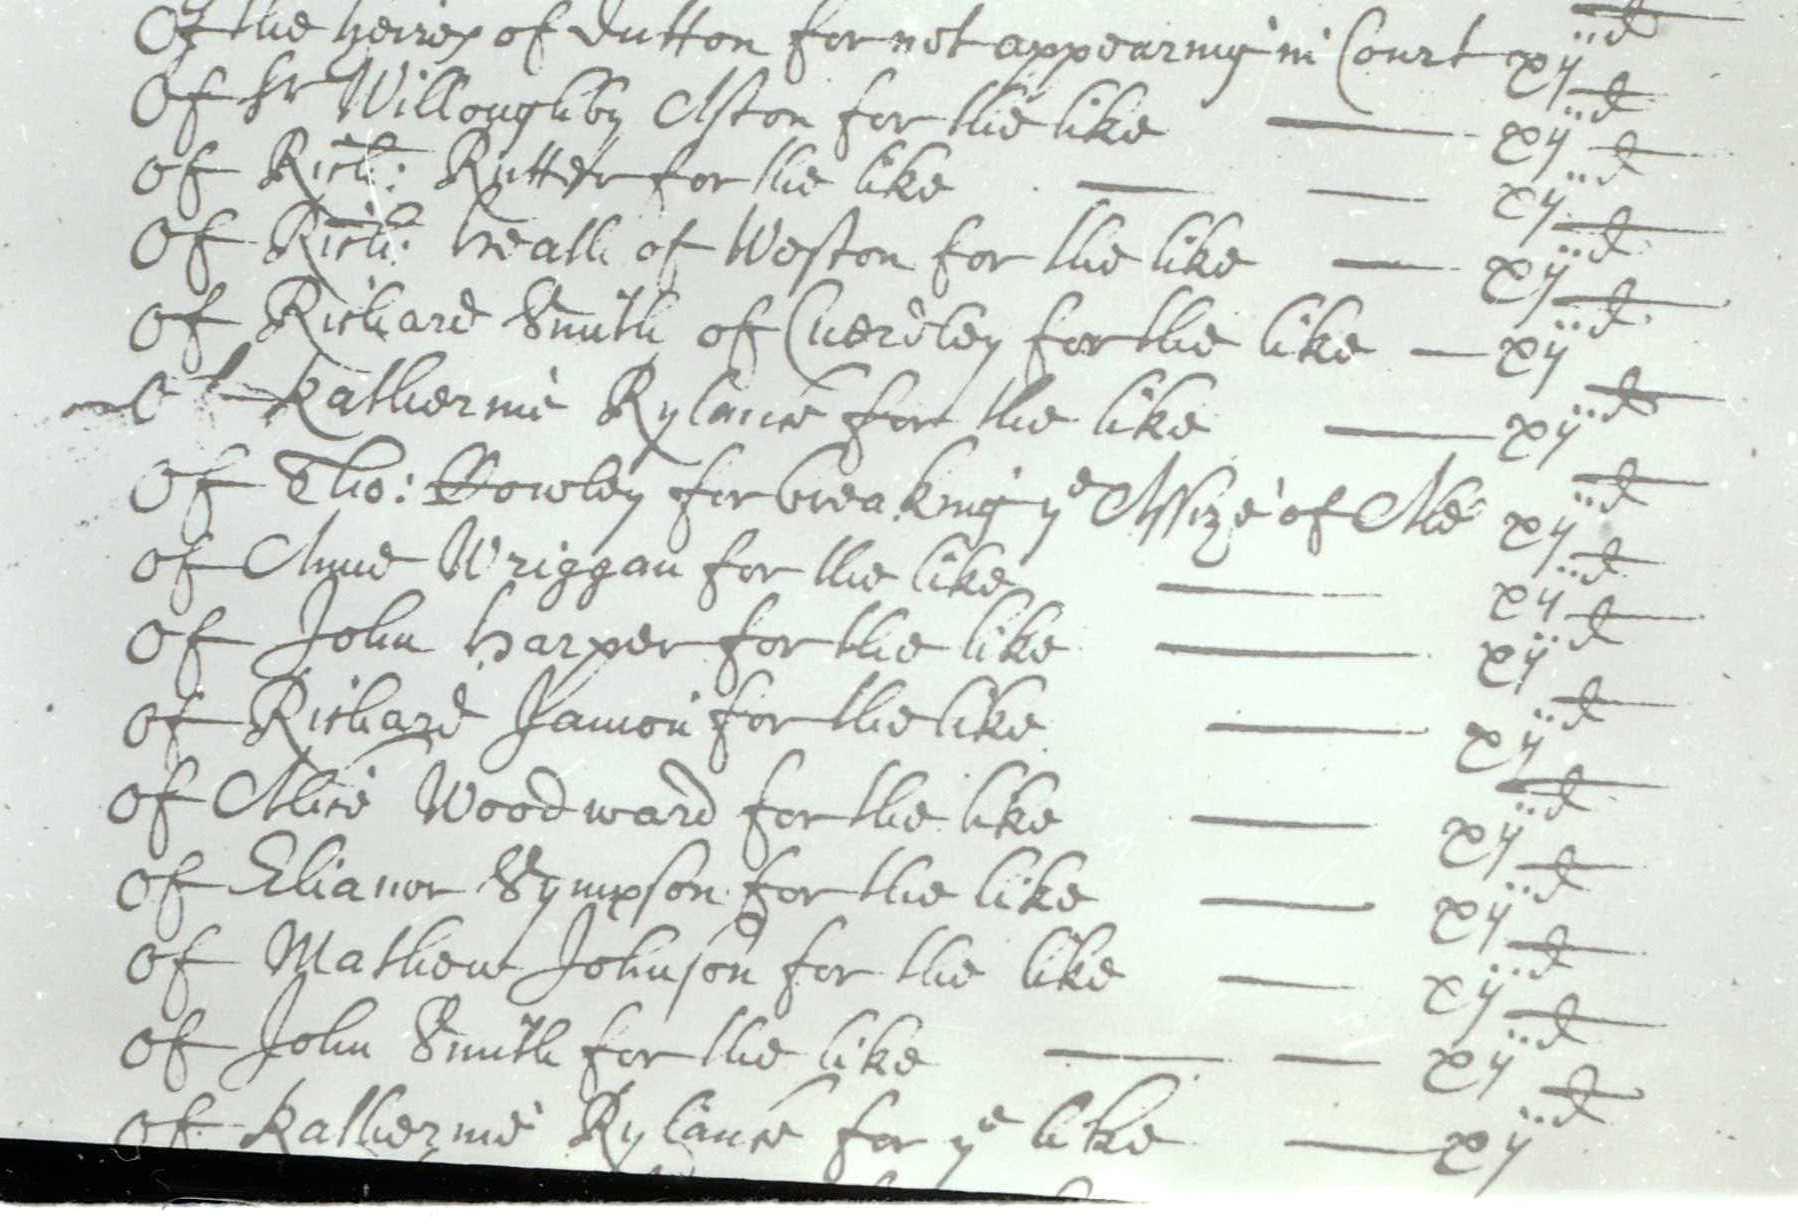 Of the heires of Dutton for not appearing in Court xij d
Of Sr Willoughby Aston for the like xij d
Of Rich: Rutter for the like xij d
Of Rich: Heath of Weston for the like xij d
Of Richard Smith of Cuerdley for the like xij d
Of Katherine Rylance for the like xij d
Of Tho: Rowley for breaking ye Assize of Ale xij d
Of Anne Wriggan for the like xij d
Of John Harper for the like xij d
Of Richard Jamon for the like xij d
Of Alice Woodward for the like xij d
Of Elianor Sympson for the like xij d
Of Mathew Johnson for the like xij d
Of John Smith for the like xij d
Of Katherine Rylance for ye like xij d